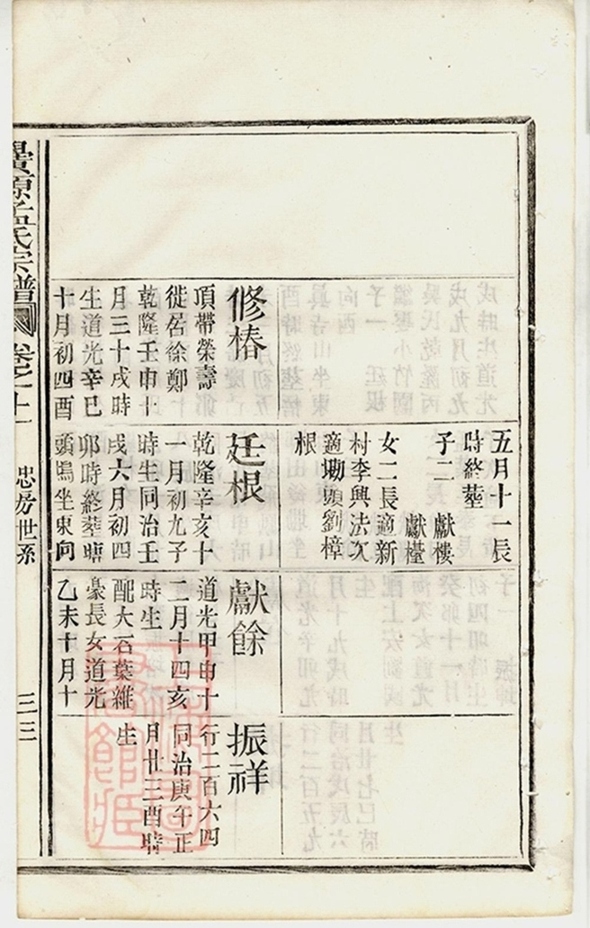 修椿
頂帶榮壽
徙居徐鄭
乾隆壬申十
月三十戌時
生道光辛巳
十月初四酉
五月十一辰
時終葬
子二 獻樓
獻檯
女二長適新
村李興法次
適坳頭劉樟
根
廷根
乾隆辛亥十
一月初九子
時生同治壬
戌六月初四
卯時終葬塘
頭塢坐東向
獻餘
道光甲申十
二月十四亥
時生
配大石葉維
豪長女道光
乙未十月十
振祥
行二百六四
同治庚午正
月廿三酉時
生
源 氏宗譜 卷之十一 忠房世系 三三